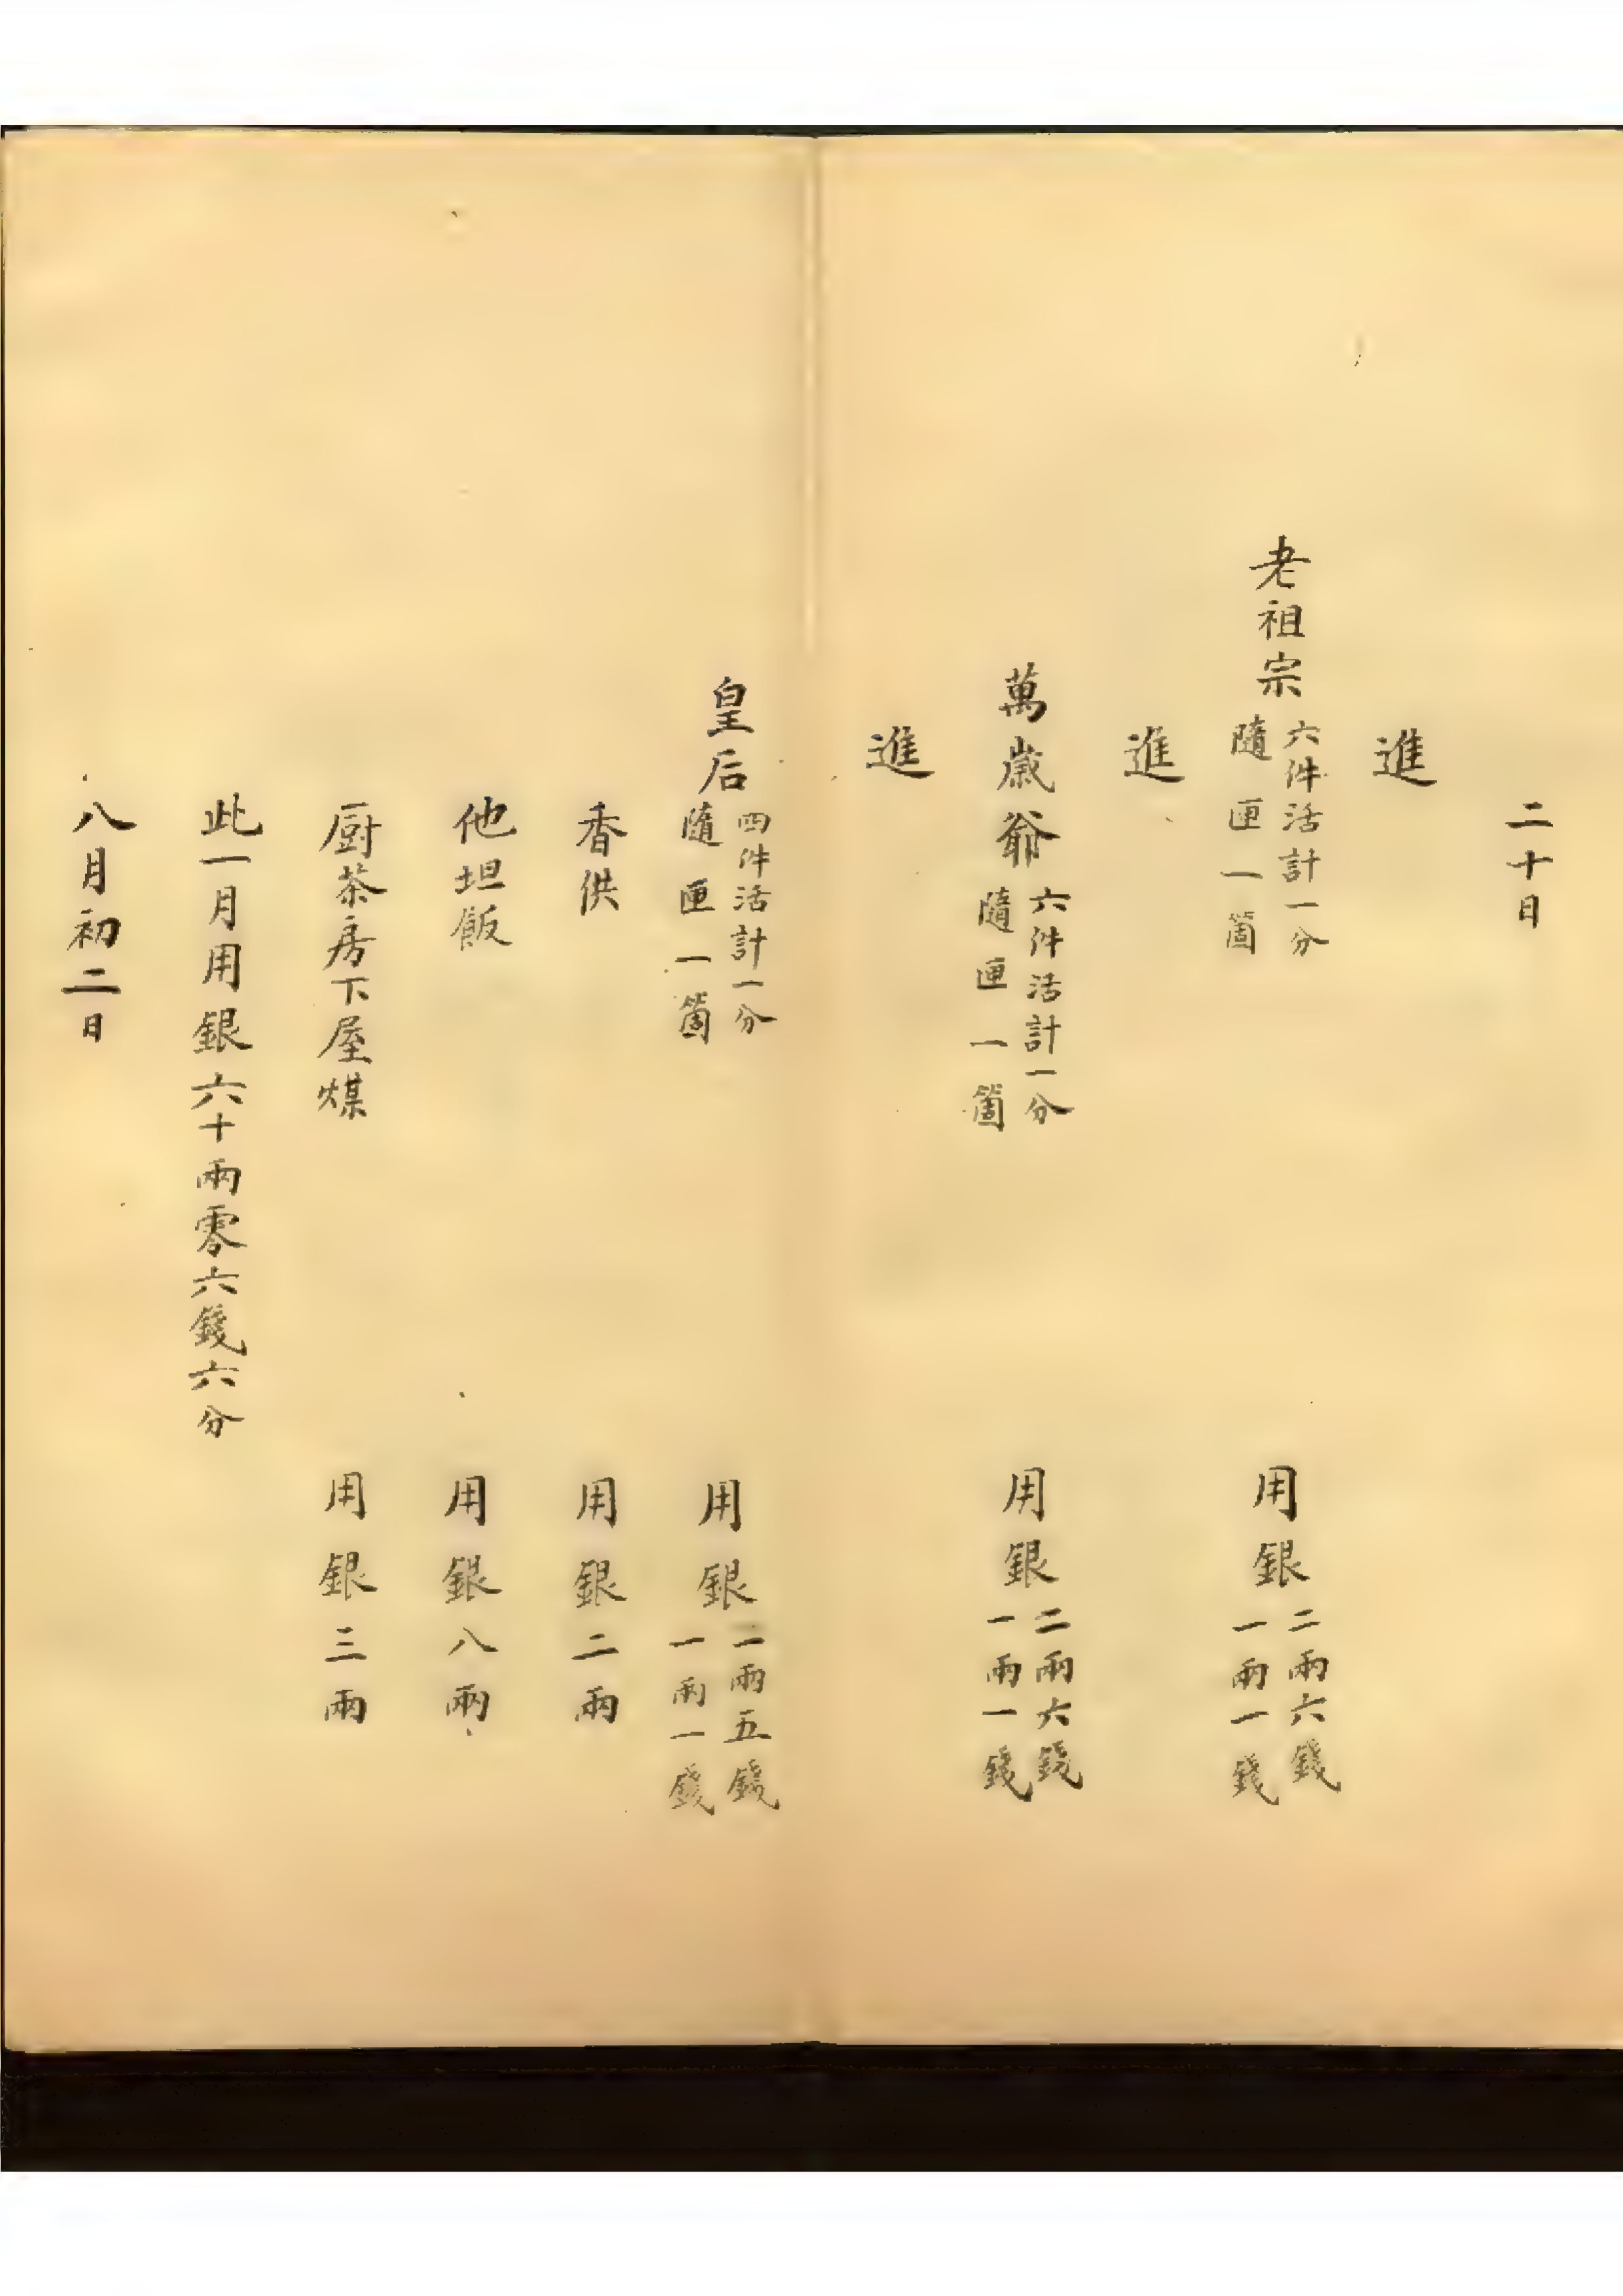 二十日
進
老祖宗 六件活計一分 隨匣一箇 用銀 二兩六錢 一兩一錢
進
萬歲爺 六件活計一分 隨匣一箇 用銀 二兩六錢 一兩一錢
進
皇后 四件活計一分 隨匣一箇 用銀 一兩五錢 一兩一錢
香供 用銀二兩
他坦飯 用銀八兩
厨茶房下屋煤 用銀三兩
此一月用銀六十兩零六錢六分
八月初二日